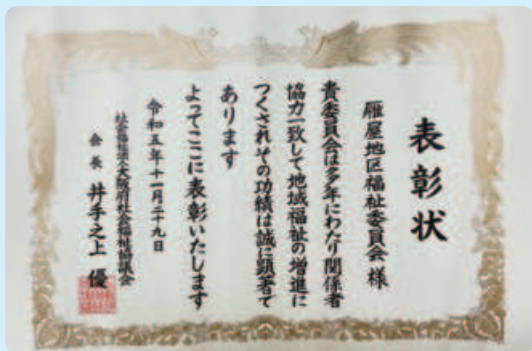 表彰状
雁屋地区福祉委員会 様
貴委員会は多年にわたり関係者
協力一致して地域福祉の増進に
つくされその功績は誠に顕著で
あります
よってここに表彰いたします
令和五年十一月二十九日
社会福祉法人大阪府社会福祉協議会
会長 井手之上 優